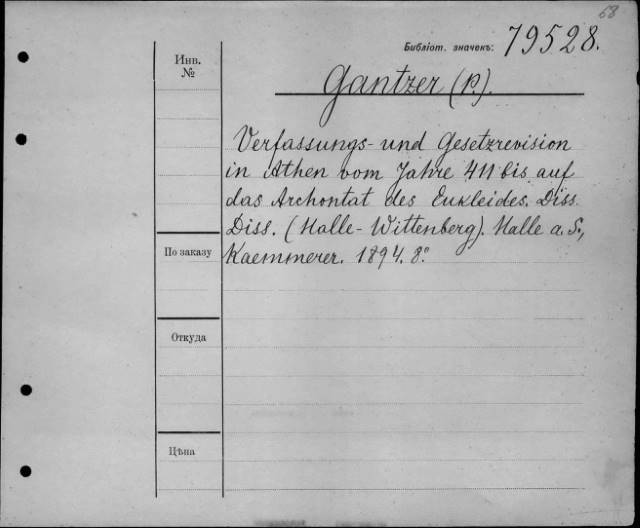 68
Библіот. значекъ: 79528.
Инв.
№
Gantzer (P.).
Verfassungs- und Gesetzrevision
in Athen vom Jahre 411 bis auf
das Archontat des Eukleides. Diss.
Diss. (Halle-Wittenberg). Halle a. S.,
По заказу
Kaemmerer. 1894. 8°.
Откуда
Цѣна